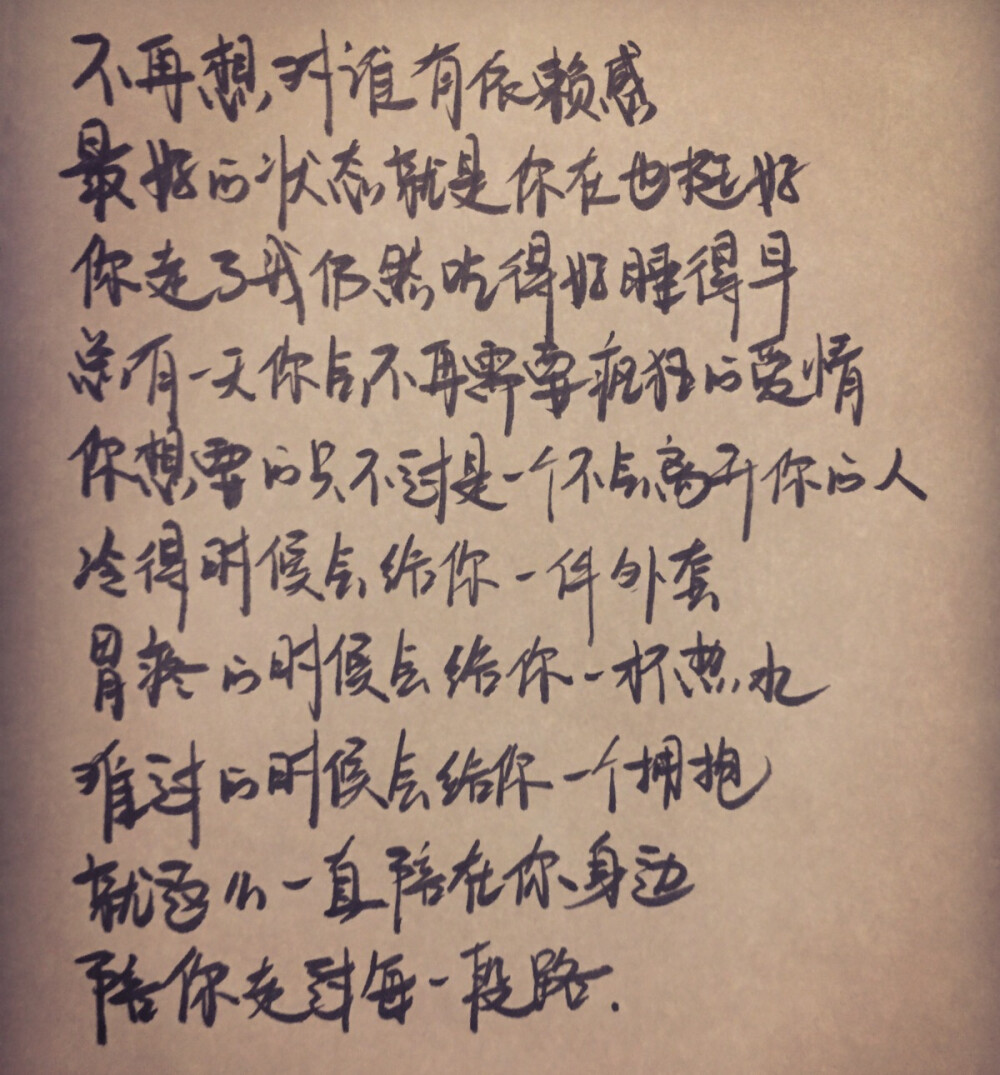 不再想对谁有依赖感
最好的状态就是你在也挺好
你走了我仍然吃得好睡得早
总有一天你会不再需要疯狂的爱情
你想要的只不过是一个不会离开你的人
冷得时候会给你一件外套
胃疼的时候会给你一杯热水
难过的时候会给你一个拥抱
就这么一直陪在你身边
陪你走过每一段路.